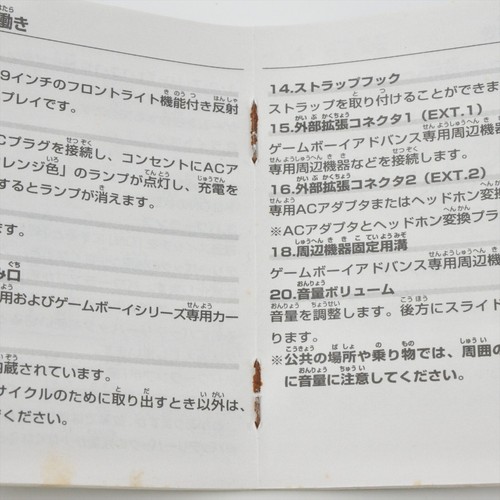 働き
9インチのフロントライト機能付き反射
プレイです。
Cプラグを接続し、コンセントにACア
レンジ色」のランプが点灯し、充電を
するとランプが消えます。
ます。
み口
用およびゲームボーイシリーズ専用カー
内蔵されています。
サイクルのために取り出すとき以外は、
ください。
14.ストラップフック
ストラップを取り付けることができま
15.外部拡張コネクタ1（EXT.1）
ゲームボーイアドバンス専用周辺機
専用周辺機器などを接続します。
16.外部拡張コネクタ2（EXT.2）
専用ACアダプタまたはヘッドホン変換
※ACアダプタとヘッドホン変換プラ
18.周辺機器固定用溝
ゲームボーイアドバンス専用周辺機
20.音量ボリューム
音量を調整します。後方にスライド
ります。
※公共の場所や乗り物では、周囲の
に音量に注意してください。